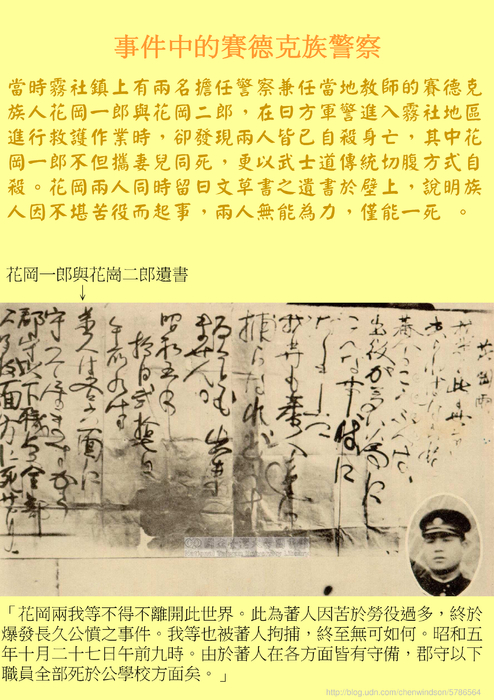 事件中的賽德克族警察
當時霧社鎮上有兩名擔任警察兼任當地教師的賽德克
族人花岡一郎與花岡二郎，在日方軍警進入霧社地區
進行救護作業時，卻發現兩人皆已自殺身亡，其中花
岡一郎不但攜妻兒同死，更以武士道傳統切腹方式自
殺。花岡兩人同時留日文草書之遺書於壁上，說明族
人因不堪苦役而起事，兩人無能為力，僅能一死 。
花岡一郎與花崗二郎遺書
↓
花岡兩
出役が多い為に
こんな事件に
なりました
昭和五年
午前九時
蕃人は各方面に
「花岡兩我等不得不離開此世界。此為蕃人因苦於勞役過多，終於
爆發長久公憤之事件。我等也被蕃人拘捕，終至無可如何。昭和五
年十月二十七日午前九時。由於蕃人在各方面皆有守備，郡守以下
職員全部死於公學校方面矣。」
http://blog.udn.com/chenwindson/5786564